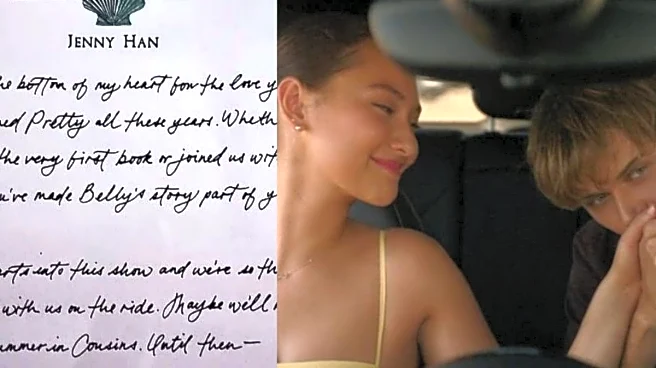 JENNY HAN
he bottom of my heart for the love y
ned Pretty all these years. Wheth
the very first book or joined us wit
u've made Belly's story part of y
arts into this show and we're so th
with us on the ride. Maybe we'll
ummer in Cousins. Until then—